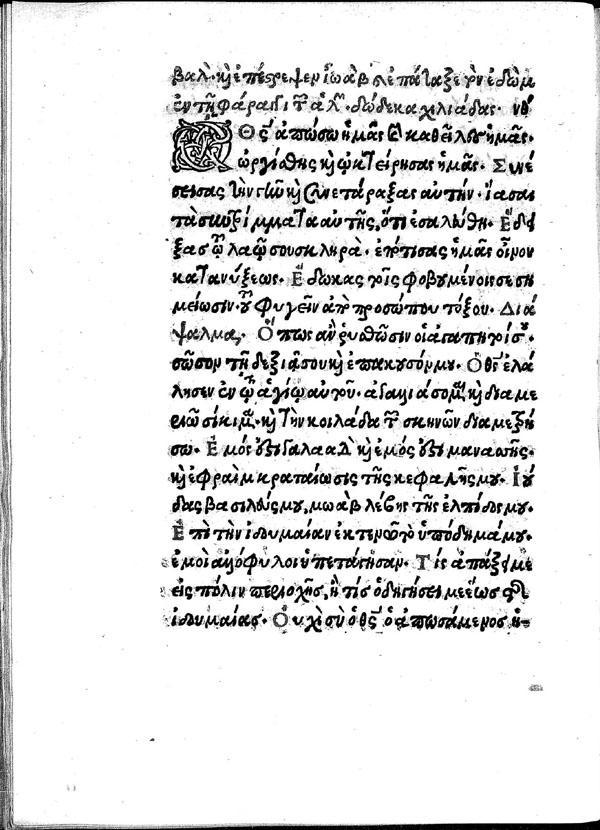 βαλ· καὶ ἐπέστρεψεν ἰωὰβ καὶ ἐπάταξε τὸν ἐδὼμ
ἐν τῇ φάραγγι τῶν ἁλῶν· δώδεκα χιλιάδας· νθ
Ὁ θς ἀπώσω ἡμᾶς καὶ καθεῖλες ἡμᾶς·
ὠργίσθης καὶ ᾠκτείρησας ἡμᾶς· Συνέ
σεισας τὴν γῆν καὶ συνετάραξας αὐτήν· ἴασαι
τὰ συντρίμματα αὐτῆς, ὅτι ἐσαλεύθη· Ἔδει
ξας τῷ λαῷ σου σκληρὰ· ἐπότισας ἡμᾶς οἶνον
κατανύξεως· Ἔδωκας τοῖς φοβουμένοις σε ση
μείωσιν· τοῦ φυγεῖν ἀπὸ προσώπου τόξου· Διά
ψαλμα· Ὅπως ἂν ῥυσθῶσιν οἱ ἀγαπητοί σου·
σῶσον τῇ δεξιᾷ σου καὶ ἐπάκουσόν μου· Ὁ θς ἐλά
λησεν ἐν τῷ ἁγίῳ αὐτοῦ· ἀγαλλιάσομαι καὶ διαμε
ριῶ σίκιμα· καὶ τὴν κοιλάδα τῶν σκηνῶν διαμετρή
σω· Ἐμός ἐστι γαλαὰδ καὶ ἐμός ἐστι μανασσῆς·
καὶ ἐφραὶμ κραταίωσις τῆς κεφαλῆς μου· Ἰού
δας βασιλεύς μου, μωὰβ λέβης τῆς ἐλπίδος μου·
Ἐπὶ τὴν ἰδουμαίαν ἐκτενῶ τὸ ὑπόδημά μου·
ἐμοὶ ἀλλόφυλοι ὑπετάγησαν· Τίς ἀπάξει με
εἰς πόλιν περιοχῆς, ἢ τίς ὁδηγήσει με ἕως τῆς
ἰδουμαίας· Οὐχὶ σὺ ὁ θς ὁ ἀπωσάμενος ἡ-